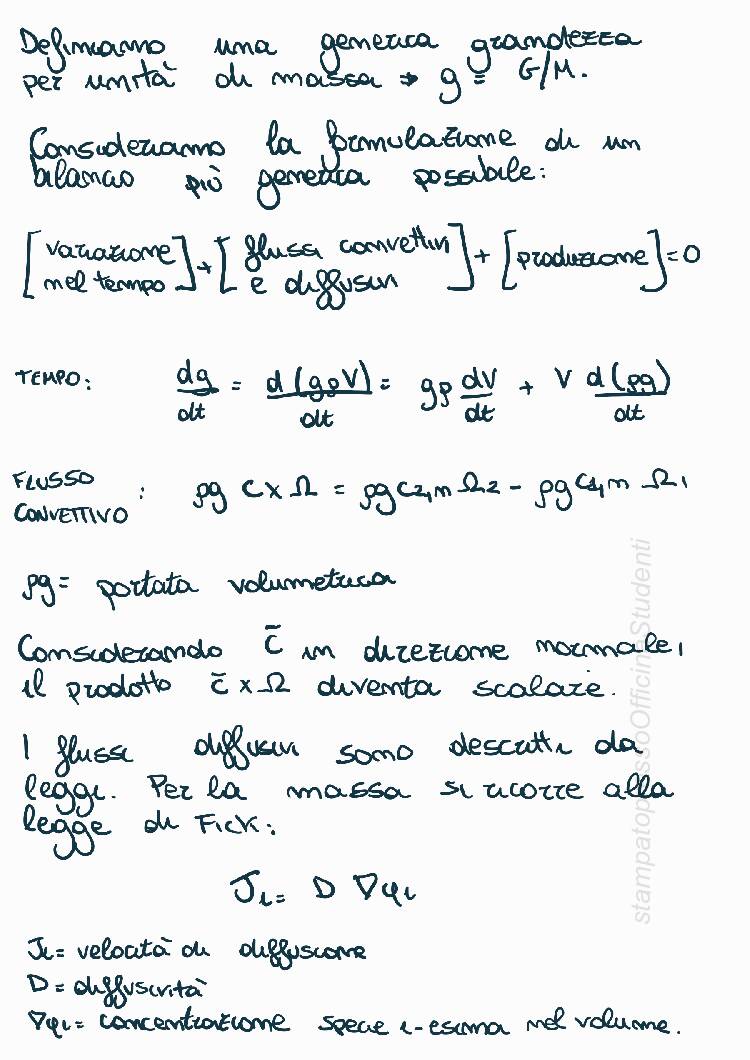 Definiamo una generica grandezza
per unità di massa → g = G/M.
Consideriamo la formulazione di un
bilancio più generica possibile:
[variazione nel tempo] + [flussi convettivi e diffusivi] + [produzione] = 0
TEMPO: dg/dt = d(gρV)/dt = gρ dV/dt + V d(ρg)/dt
FLUSSO CONVETTIVO : ρg C x Ω = ρg C2,n Ω2 - ρg C1,n Ω1
ρg = portata volumetrica
Considerando c̄ in direzione normale,
il prodotto c̄ x Ω diventa scalare.
I flussi diffusivi sono descritti da
leggi. Per la massa si ricorre alla
legge di Fick:
Ji = D ∇φi
Ji = velocità di diffusione
D = diffusività
∇φi = concentrazione specie i-esima nel volume.
stampatopressoOfficinaStudenti